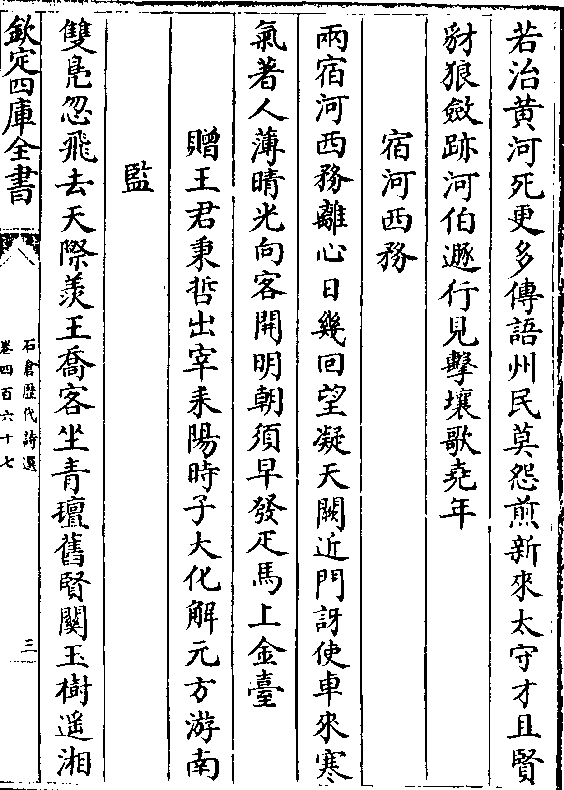 若治黄河死更多傳語州民莫怨煎新來太守才且賢
豺狼斂跡河伯遯行見擊壤歌堯年
宿河西務
兩宿河西務離心日幾回望凝天闕近門訝使車來寒
氣著人薄晴光向客開明朝須早發疋馬上金臺
贈王君秉哲出宰耒陽時子大化解元方游南
監
雙鳧忽飛去天際羨王喬客坐青璮舊賢關玉樹遥湘
欽定四庫全書
石倉歴代詩選
卷四百六十七
三